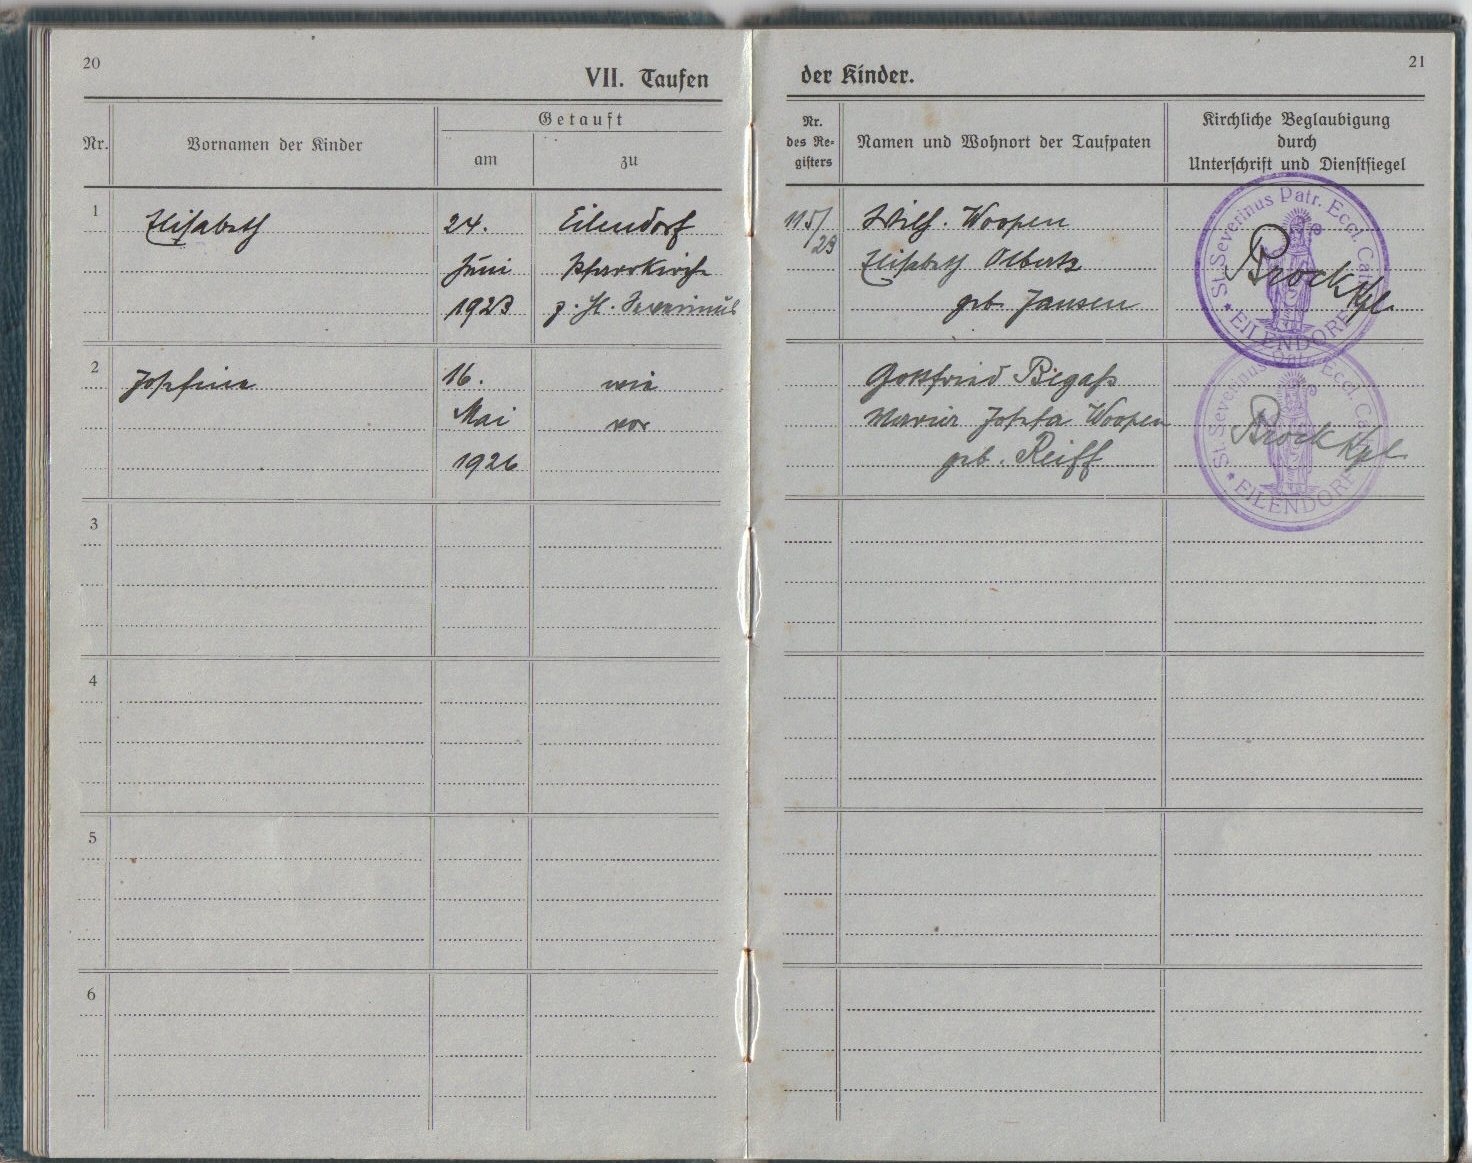 20
VII. Taufen
Nr.
Vornamen der Kinder
Getauft
am
zu
1
Elisabeth
24.
Juni
1923
Eilendorf
Pfarrkirche
z. hl. Severinus
2
Josefine
16.
Mai
1926
wie
vor
3
4
5
6
21
der Kinder.
Nr.
des Re-
gisters
Namen und Wohnort der Taufpaten
Kirchliche Beglaubigung
durch
Unterschrift und Dienstsiegel
115/
23
Wilh. Woopen
Elisabeth Olbertz
geb. Jansen
St. Severinus Patr. Eccl. Cath.
EILENDORF
Brock Kpl.
Gottfried Bigaß
Maria Josefa Woopen
geb. Reiff
St. Severinus Patr. Eccl. Cath.
EILENDORF
Brock Kpl.